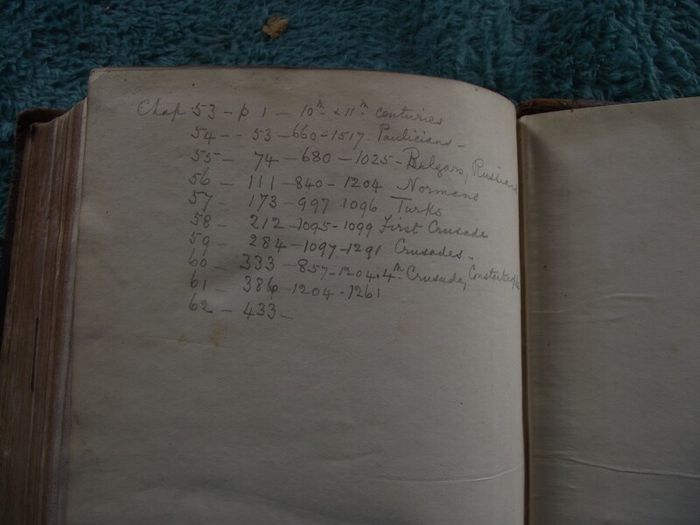 Chap 53 - p 1 - 10th & 11th centuries
54 - - 53 - 660 - 1517 - Paulicians -
55 - 74 - 680 - 1025 - Belgars, Russians
56 - 111 - 840 - 1204 Normans
57 173 - 997 1096 Turks
58 - 212 - 1095 - 1099 First Crusade
59 - 284 - 1097 - 1291 Crusades -
60 - 333 - 857 - 1204. 4th Crusade,
61 - 386 1204 - 1261
62 - 433 -